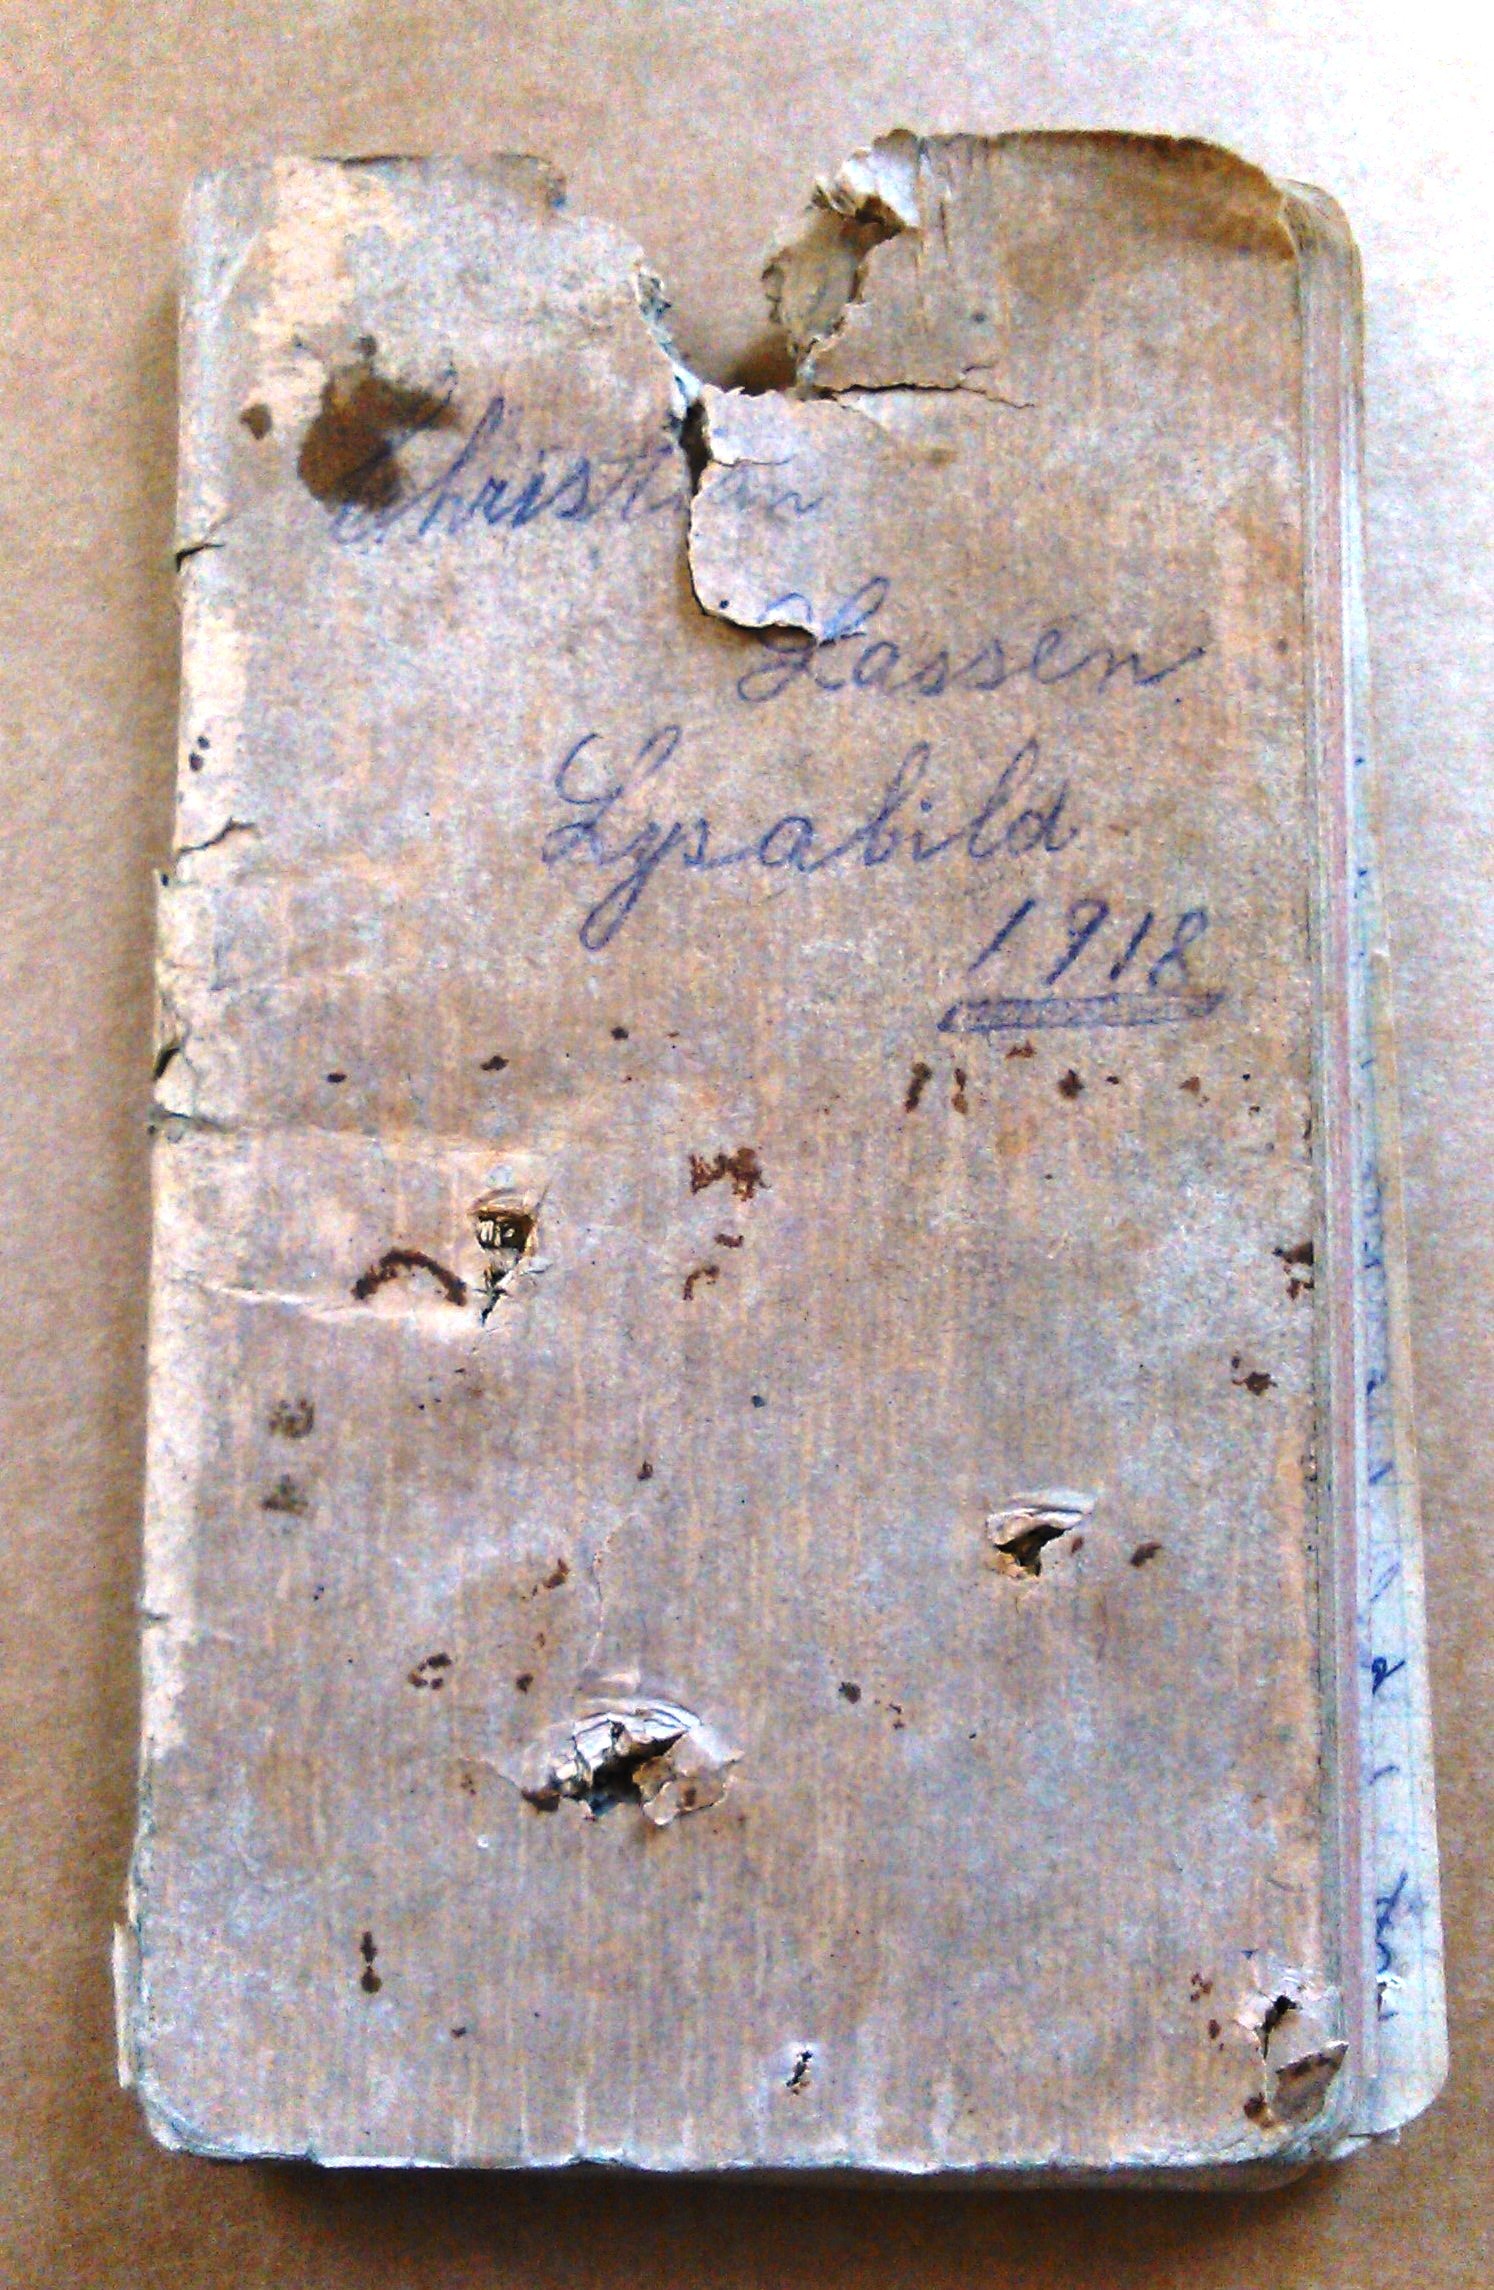 Christian
Lassen
Lysabild
1918